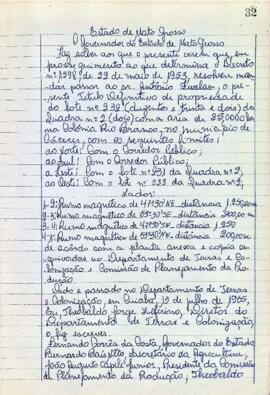 32
Estado de Mato Grosso
O Governador do Estado de Mato Grosso
Faz saber aos que o presente virem que, em
prosseguimento ao que determina o Decreto
nº 1.598, de 22 de maio de 1953, resolveu man-
dar passar ao sr. Antônio, o pre-
sente Titulo Definitivo de propriedade
do lote nº 232 (duzentos e trinta e dois) da
Quadra nº 2 (dois) com a area de 25,0000 ha
na Colonia Rio Branco, no municipio de
Cáceres, com os seguintes limites:
ao Norte: Com o Corredor Público;
ao Sul: Com o Corredor Público;
a Leste: Com o lote nº 231 da Quadra nº 2;
ao Oeste: Com o lote nº 233 da Quadra nº 2;
Lados:
1-2: Rumo magnético de distancia 1.250,00 m
2-3: Rumo magnético de distancia 200,00 m
3-4: Rumo magnético de distancia 1.250
4-1: Rumo magnético de distancia 200,00 m
de acôrdo com a planta anexa e copia ar-
quivadas no Departamento de Terras e Co-
lonização e Comissão de Planejamento da Pro-
dução.
Dado e passado no Departamento de Terras
e Colonização, em Cuiabá, 19 de julho de 1965,
Eu Theobaldo Jorge, Diretor do
Departamento de Terras e Colonização,
o fiz escrever.
Fernando Corrêa da Costa, Governador do Estado,
Bernardo, Secretário da Agricultura,
João Augusto Capilé Junior, Presidente da Comissão
de Planejamento da Produção, Theobaldo